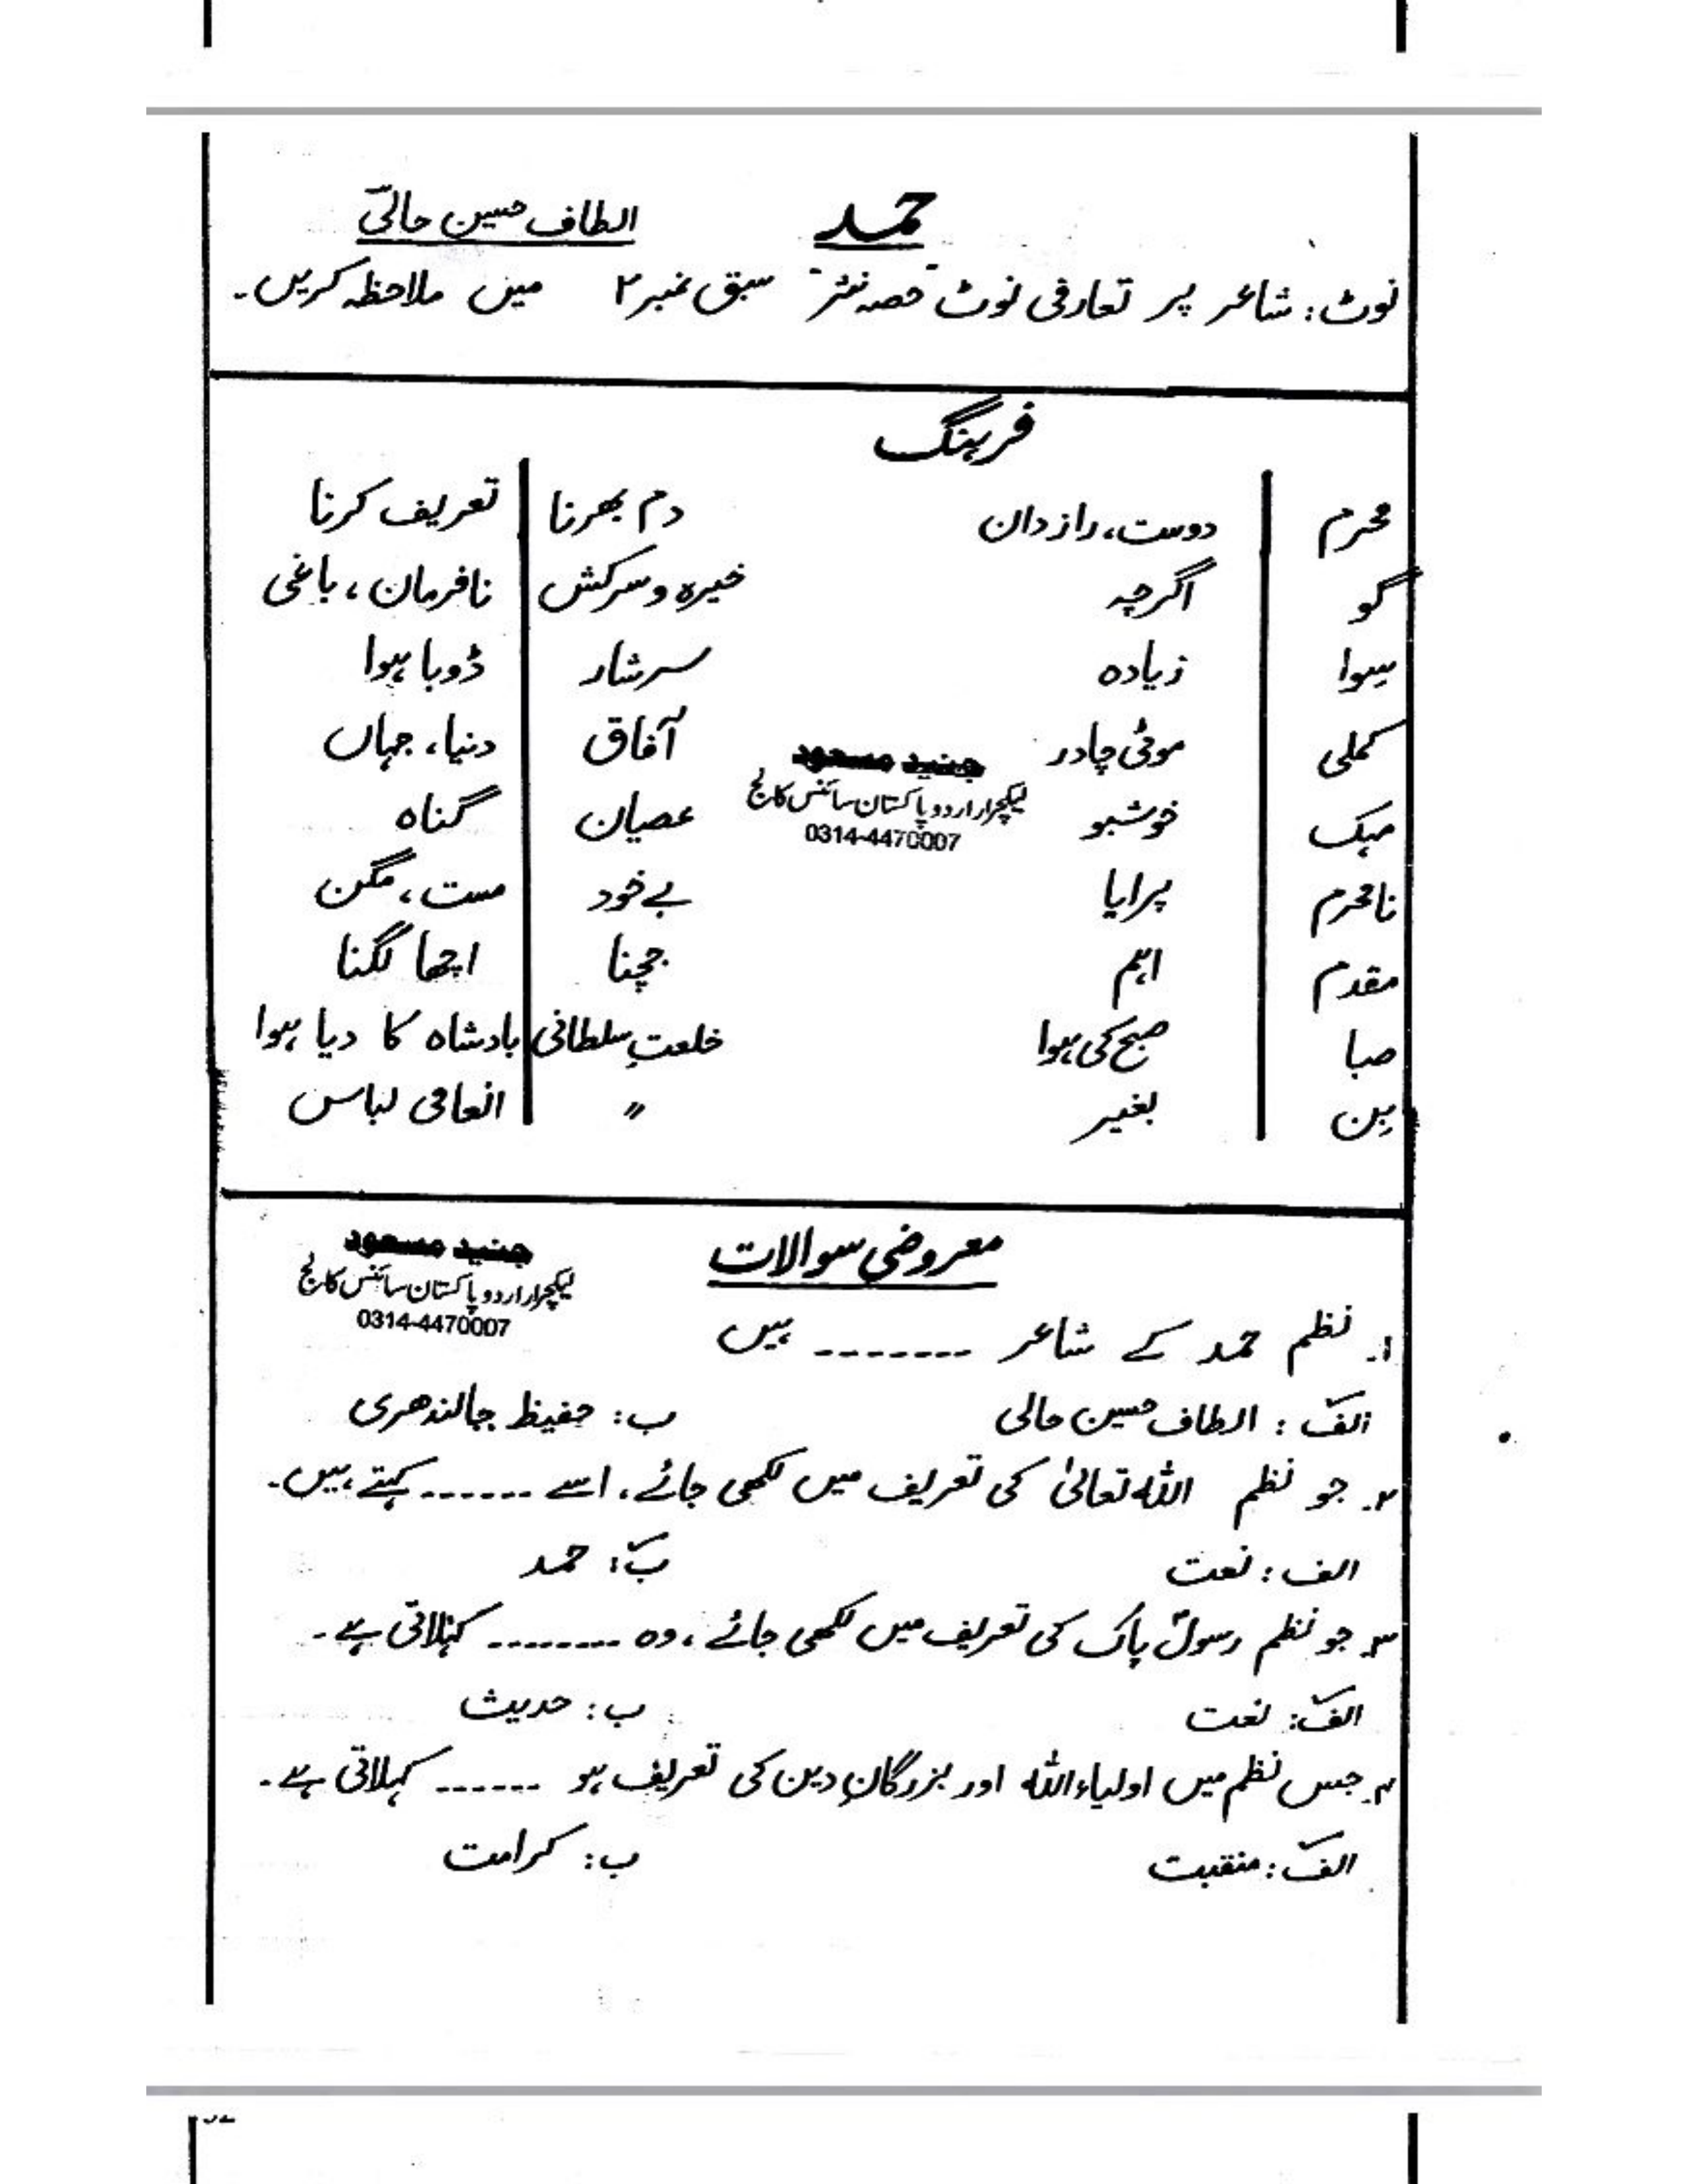 حمد الطاف حسین حالیؔ
نوٹ: شاعر پر تعارفی نوٹ "حصہ نثر" سبق نمبر ۲ میں ملاحظہ کریں۔
فرہنگ
محرم دوست، رازدان دم بھرنا تعریف کرنا
گو اگرچہ خیرہ و سرکش نافرمان، باغی
سِوا زیادہ سرشار ڈوبا ہوا
کملی موٹی چادر آفاق دنیا، جہاں
جنید مسعود
لیکچرار اردو پاکستان سائنس کالج
0314-4470007
مہک خوشبو عصیان گناہ
نامحرم پرایا بے خود مست، مگن
مقدم اہم جچنا اچھا لگنا
صبا صبح کی ہوا خلعتِ سلطانی بادشاہ کا دیا ہوا
بِن بغیر " انعامی لباس
معروضی سوالات
جنید مسعود
لیکچرار اردو پاکستان سائنس کالج
0314-4470007
۱۔ نظم حمد کے شاعر -------- ہیں
الف: الطاف حسین حالی ب: حفیظ جالندھری
۲۔ جو نظم اللہ تعالیٰ کی تعریف میں لکھی جائے، اسے ------ کہتے ہیں۔
الف: نعت ب: حمد
۳۔ جو نظم رسولؐ پاک کی تعریف میں لکھی جائے، وہ -------- کہلاتی ہے۔
الف: نعت ب: حدیث
۴۔ جس نظم میں اولیاء اللہ اور بزرگانِ دین کی تعریف ہو ------ کہلاتی ہے۔
الف: منقبت ب: کرامت